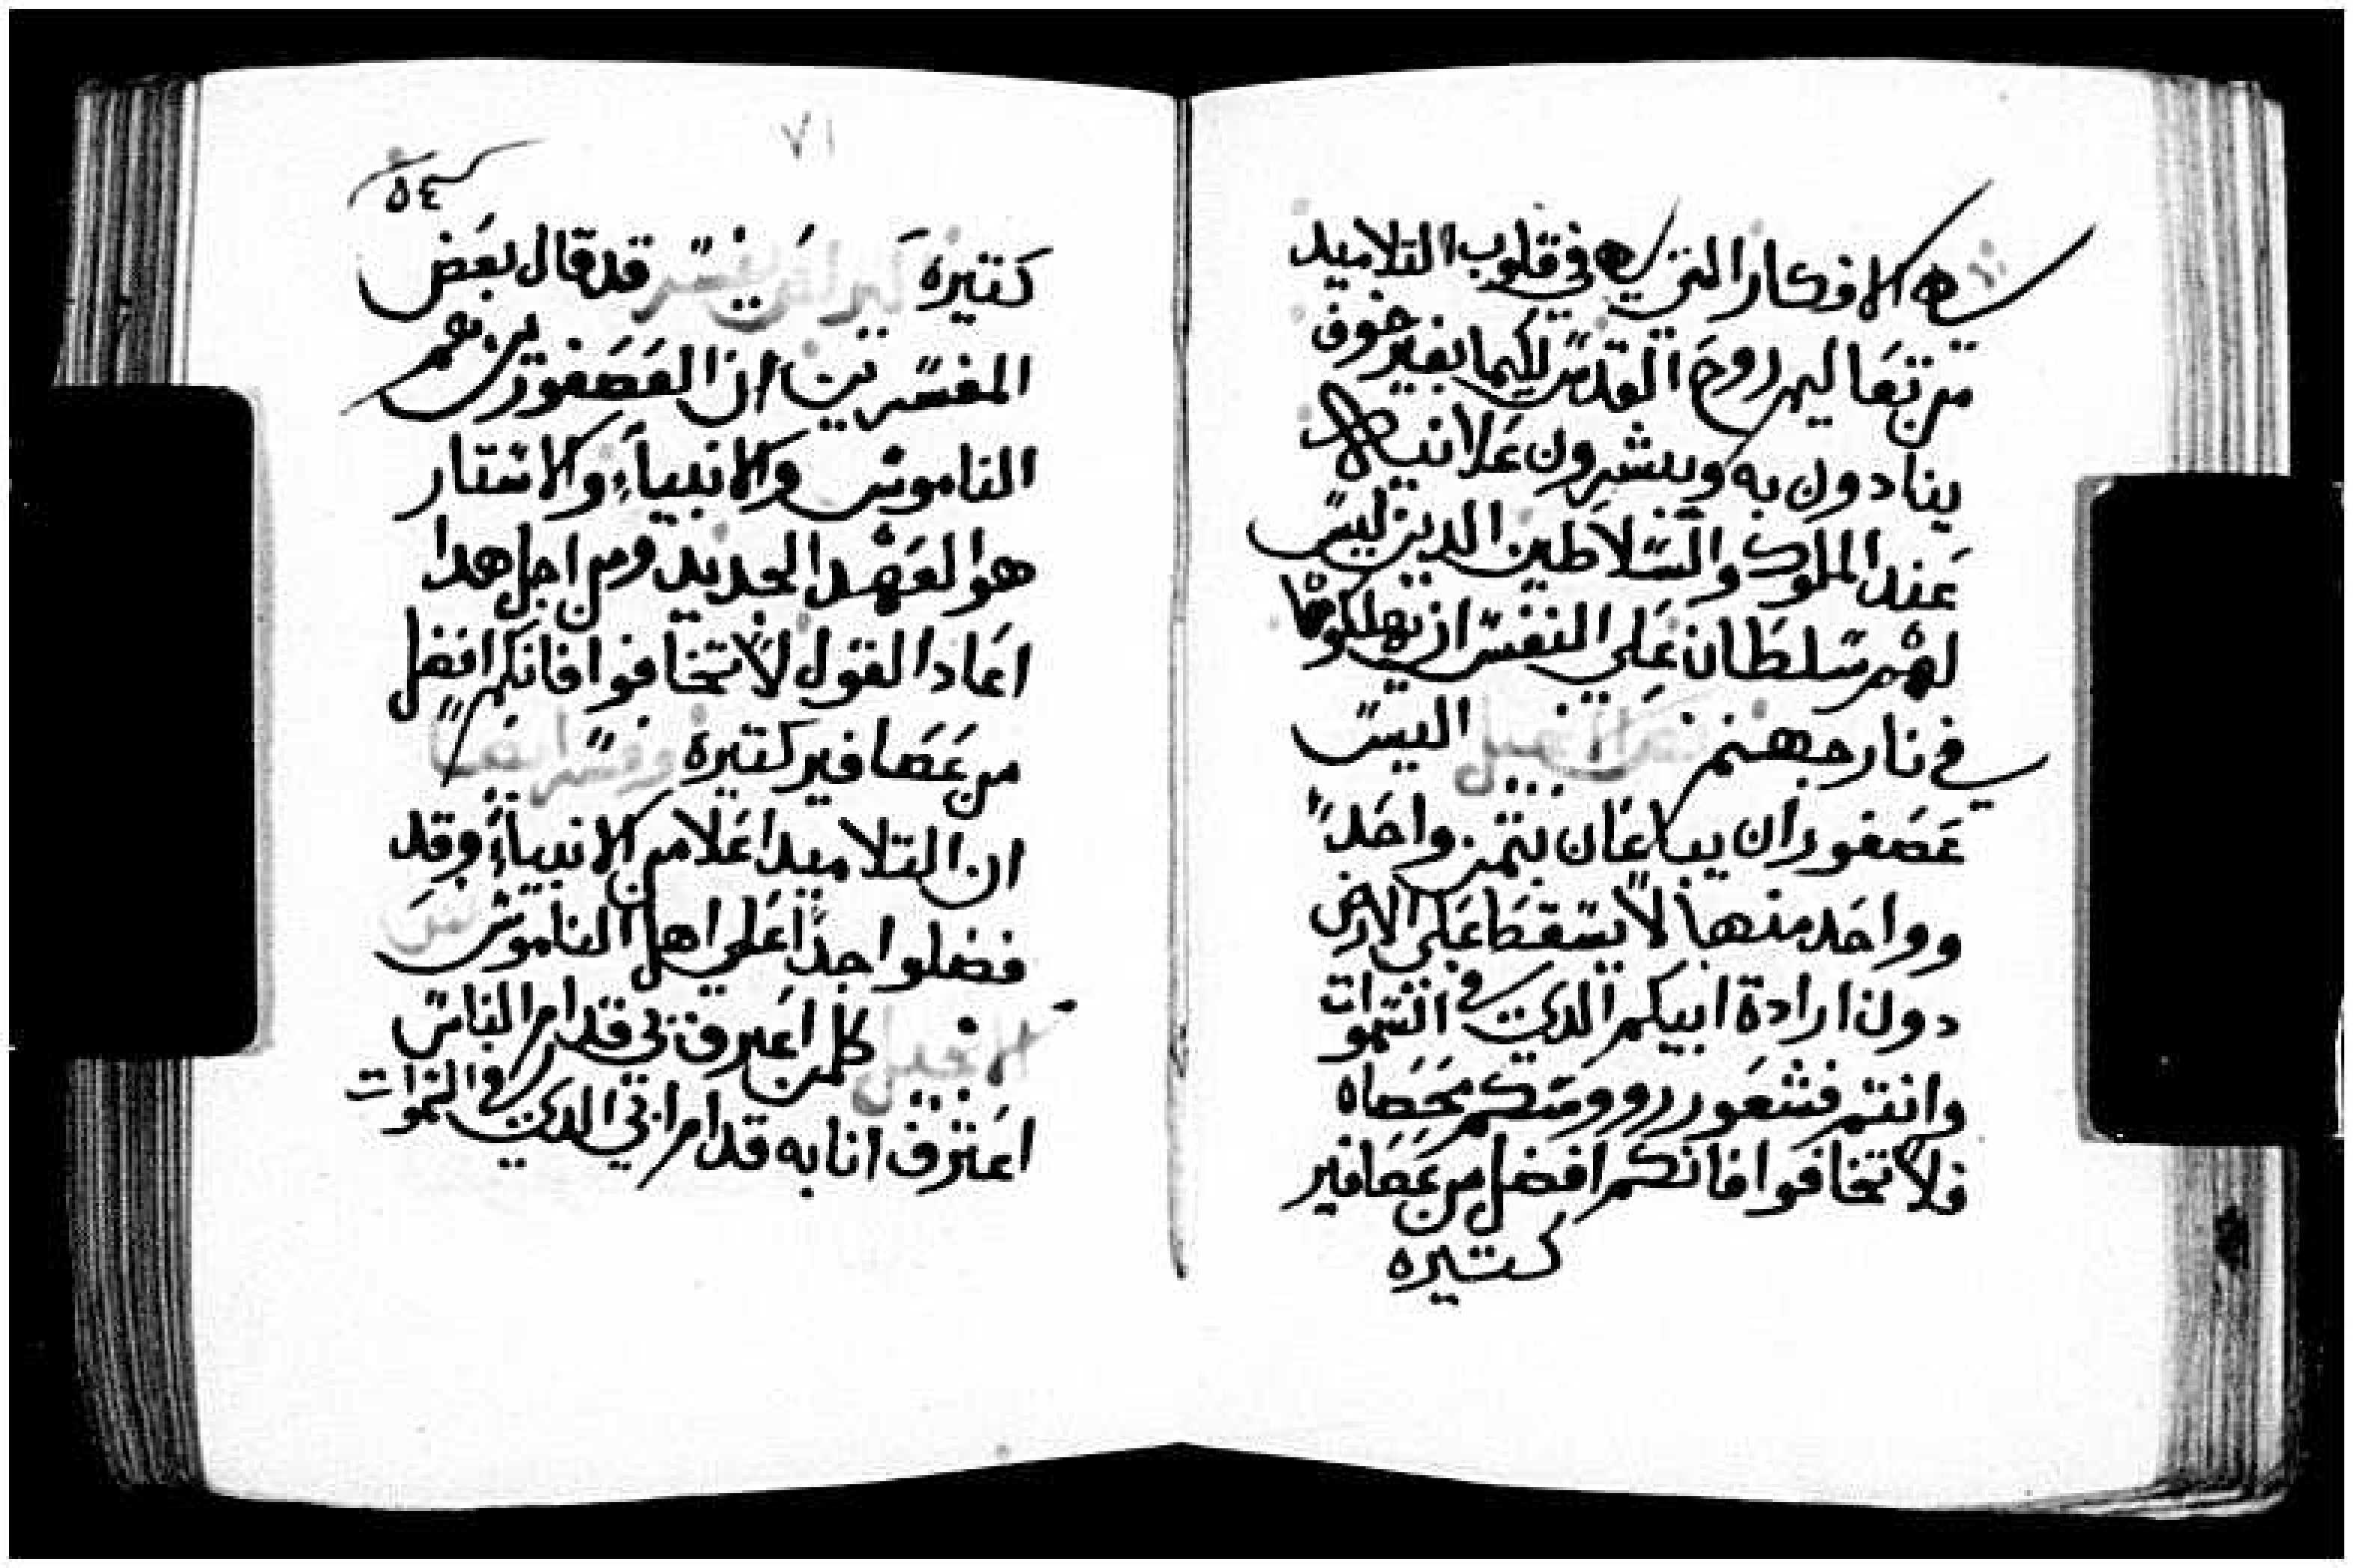 هي الافكار التي هي في قلوب التلاميد
من تعاليم روح القدس لكيما بغير خوف
ينادون به ويبشرون علانيه
عند الملوك والسلاطين الدين ليس
لهم سلطان علي النفس ان يهلكوها
في نار جهنم الانجيل اليس
عصفوران يباعان بتمن واحد
وواحد منها لا يسقط علي الارض
دون ارادة ابيكم الدي في السموات
وانتم فشعور رووسكم محصاه
فلا تخافوا فانكم افضل من عصافير
كتيره
٧١
٥٤
كتيره قد قال بعض
المفسرين ان العصفورين هم
الناموس والانبياء والاستار
هو العهد الجديد ومن اجل هدا
اعاد القول لا تخافوا فانكم افضل
من عصافير كتيره وفسر ايضا
ان التلاميد اعلا من الانبياء وقد
فضلوا جدا علي اهل الناموس
الانجيل كلمن اعترف بي قدام الناس
اعترف انا به قدام ابي الدي في السموات